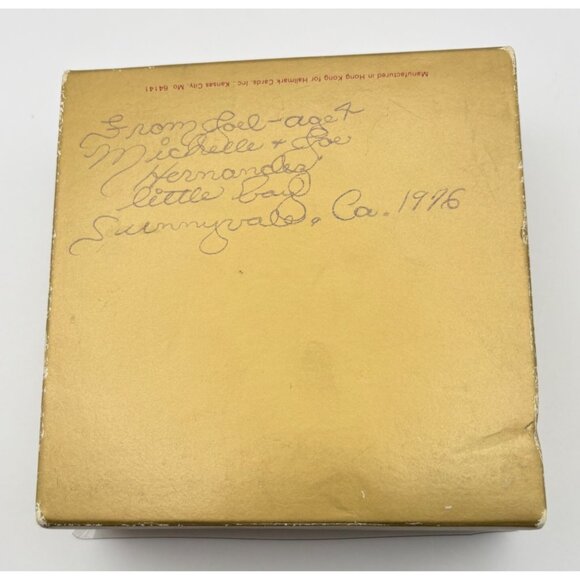 Manufactured in Hong Kong for Hallmark Cards, Inc., Kansas City, Mo 64141
From Joel - age 4
Michelle + Joe
Hernandez'
little boy
Sunnyvale, Ca. 1976